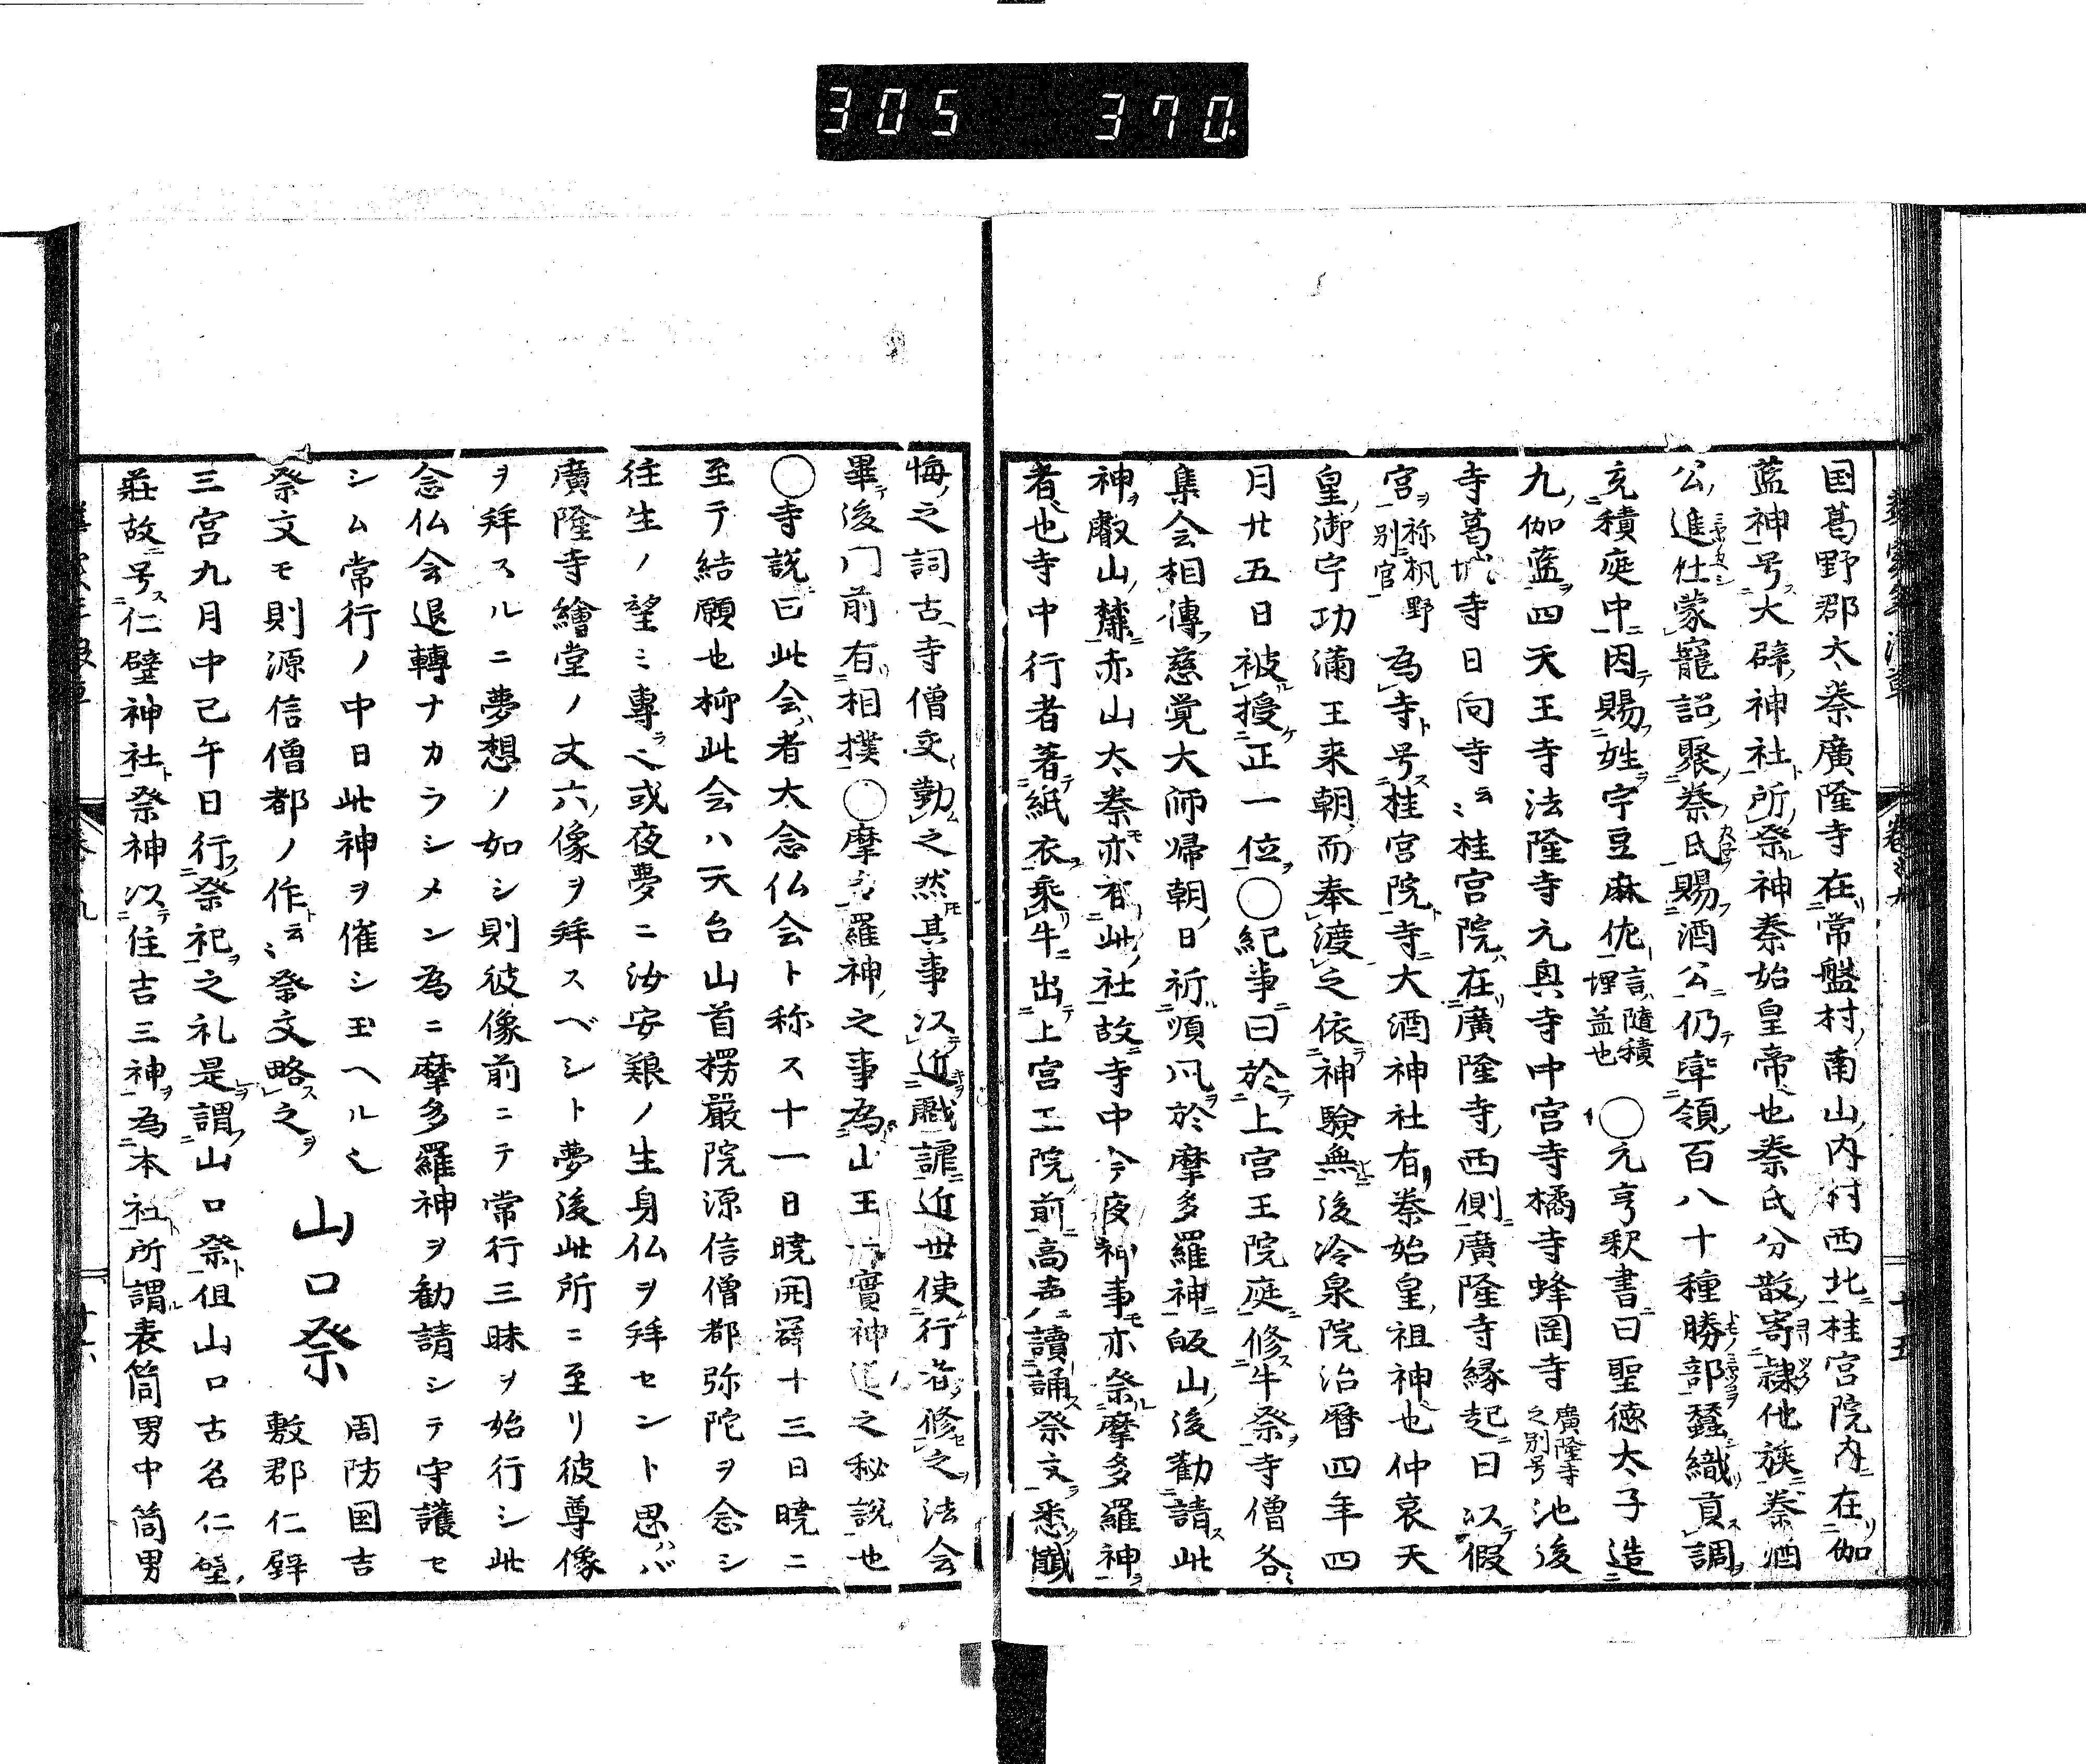 305 370
国葛野郡太秦廣隆寺在常盤村南山内村西北桂宮院内在伽
藍神号大辟神社所祭神秦始皇帝也秦氏分散寄隷他族秦酒
公進仕蒙寵詔聚秦氏賜酒公仍率領百八十種勝部蚕織貢調
充積庭中因賜姓宇豆麻佐言隨積埋益也〇元亨釈書曰聖徳太子造
九伽藍四天王寺法隆寺元興寺中宮寺橘寺蜂岡寺廣隆寺之別号池後
寺葛城寺日向寺云〻桂宮院在廣隆寺西側廣隆寺縁起曰以假
宮祢枫野別官為寺号桂宮院寺大酒神社有秦始皇祖神也仲哀天
皇御宇功満王来朝而奉渡之依神験無後冷泉院治暦四年四
月廿五日被授正一位〇紀事曰於上宮王院庭修牛祭寺僧各
集会相傳慈覚大師帰朝日祈順风於摩多羅神皈山後勸請此
神叡山麓赤山太秦亦有此社故寺中今夜神事亦祭摩多羅神
者也寺中行者著紙衣乘牛出上宮王院前高声讀誦祭文悉懺
悔之詞古寺僧交勤之然其事以近戱謔近世使行者修之法会
畢後门前有相撲〇摩多羅神之事為山王一實神道之秘説也
〇寺説曰此会者大念仏会ト称ス十一日暁開闢十三日暁ニ
至テ結願也抑此会ハ天台山首楞嚴院源信僧都弥陀ヲ念シ
往生ノ望ミ専ラ也或夜夢ニ汝安艱ノ生身仏ヲ拜セント思ハバ
廣隆寺繪堂ノ丈六像ヲ拜スベシト夢後此所ニ至リ彼尊像
ヲ拜スルニ夢想ノ如シ則彼像前ニテ常行三昧ヲ始行シ此
念仏会退轉ナカラシメン為ニ摩多羅神ヲ勧請シテ守護セ
シム常行ノ中日此神ヲ催シ玉ヘル也
祭文モ則源信僧都ノ作ト云〻祭文略之
山口祭
周防国吉
敷郡仁辟
三宮九月中己午日行祭祀之礼是謂山口祭但山口古名仁壁
莊故号仁壁神社祭神以住吉三神為本社所謂表筒男中筒男